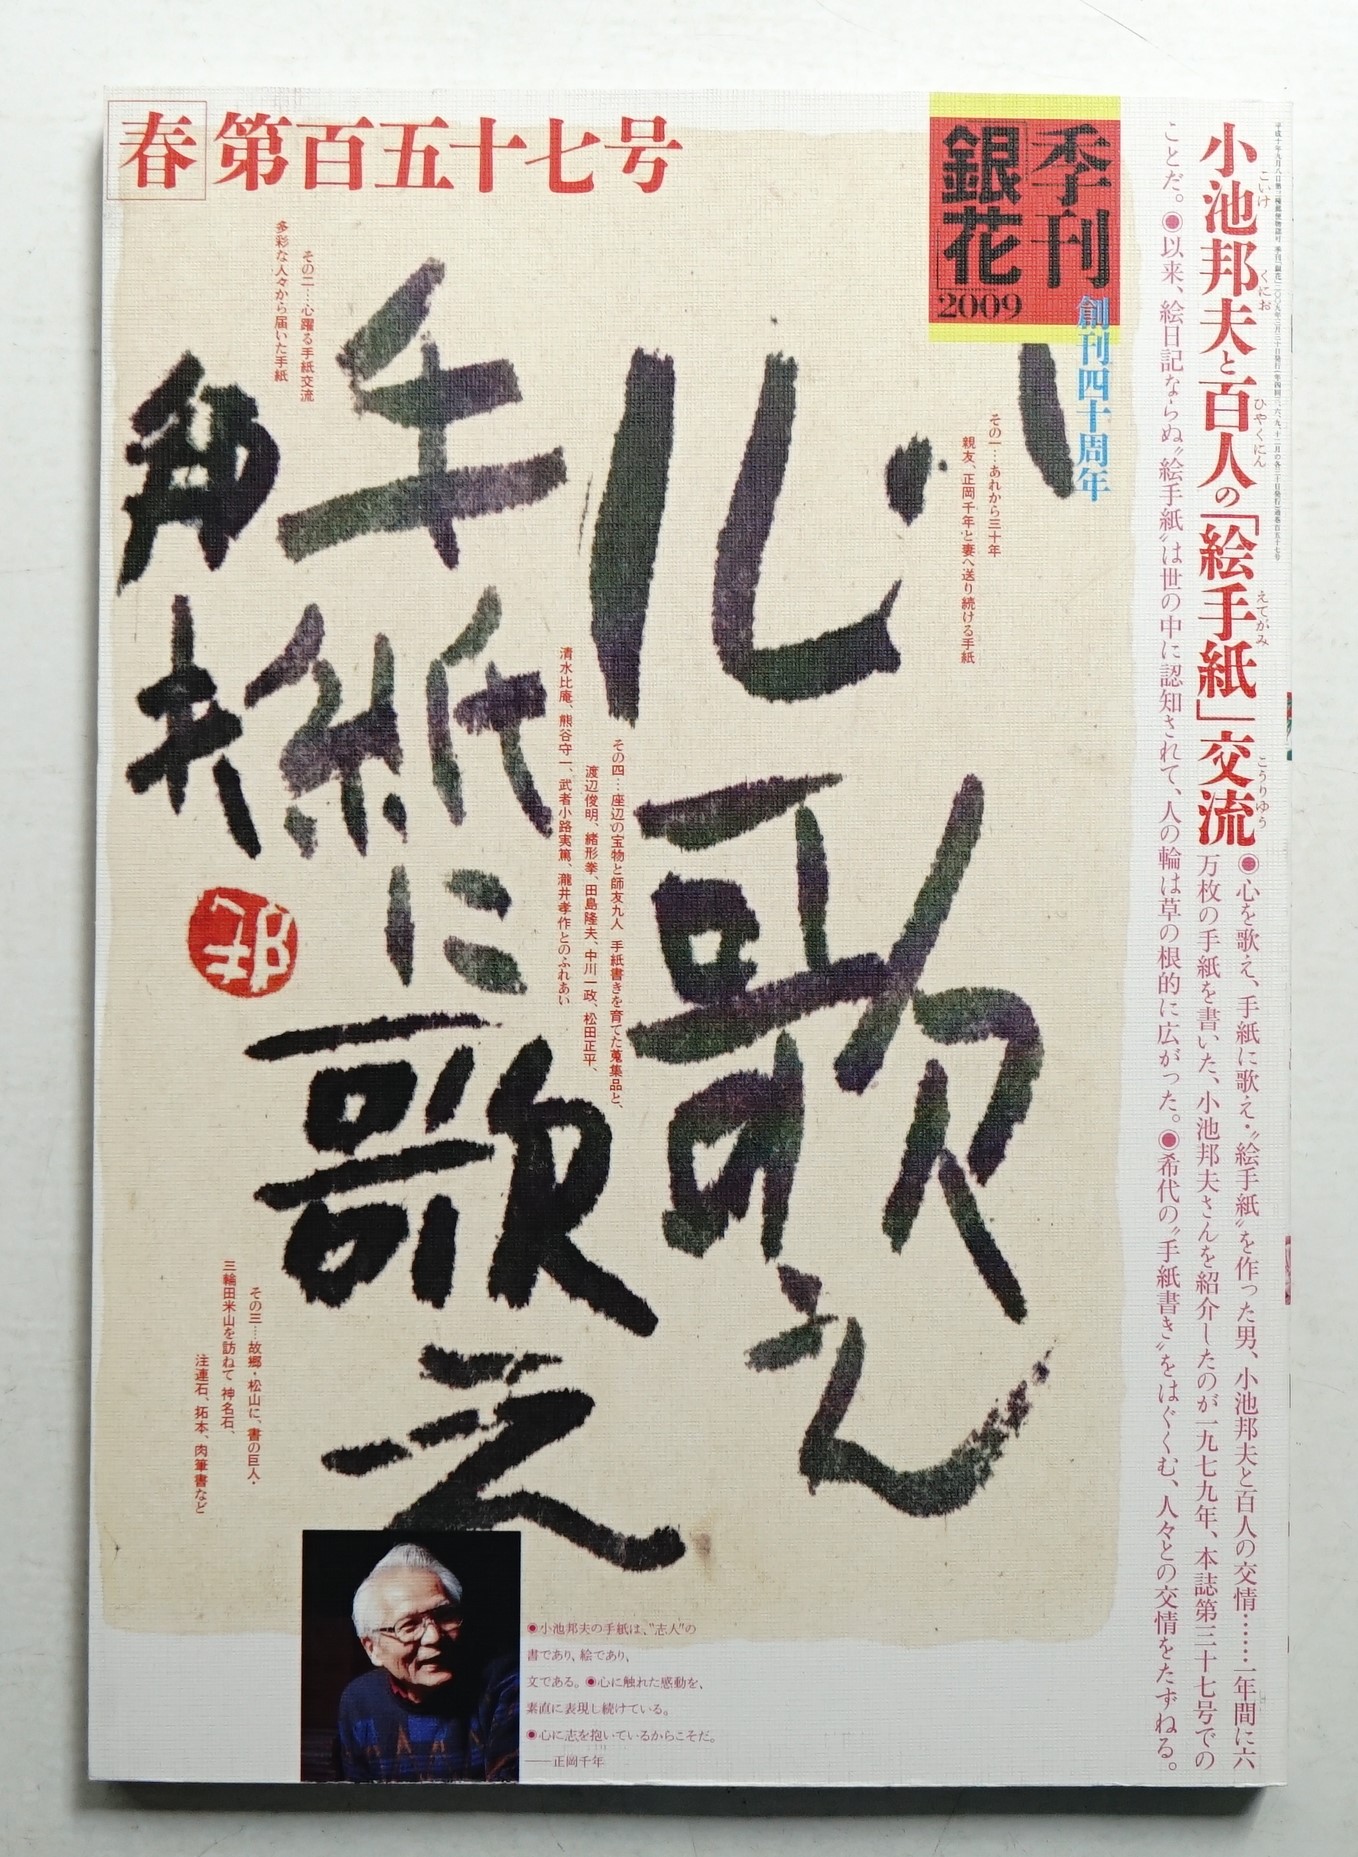 春 第百五十七号
季刊
「銀花」
2009
創刊四十周年
小池邦夫と百人の「絵手紙」交流
こいけ くにお ひゃくにん えてがみ こうりゅう
◉心を歌え、手紙に歌え・〝絵手紙〟を作った男、小池邦夫と百人の交情……一年間に六
万枚の手紙を書いた、小池邦夫さんを紹介したのが一九七九年、本誌第三十七号での
ことだ。◉以来、絵日記ならぬ〝絵手紙〟は世の中に認知されて、人の輪は草の根的に広がった。◉希代の〝手紙書き〟をはぐくむ、人々との交情をたずねる。
その一…あれから三十年
親友、正岡千年と妻へ送り続ける手紙
心
歌え
手紙に歌え
邦夫
その二…心躍る手紙交流
多彩な人々から届いた手紙
その四…座辺の宝物と師友九人 手紙書きを育てた蒐集品と、
渡辺俊明、緒形拳、田島隆夫、中川一政、松田正平、
清水比庵、熊谷守一、武者小路実篤、瀧井孝作とのふれあい
その三…故郷・松山に、書の巨人・
三輪田米山を訪ねて 神名石、
注連石、拓本、肉筆書など
◉小池邦夫の手紙は、〝志人〟の
書であり、絵であり、
文である。◉心に触れた感動を、
素直に表現し続けている。
◉心に志を抱いているからこそだ。
──正岡千年